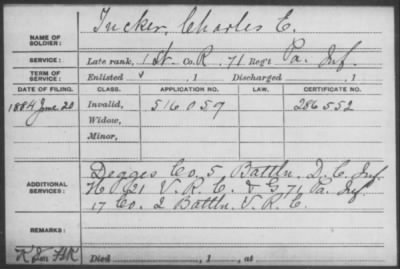 NAME OF SOLDIER: Tucker, Charles E.
SERVICE: Late rank, 1 St. Co. R, 71 Reg't Pa. Inf.
TERM OF SERVICE: Enlisted , 1 Discharged , 1
DATE OF FILING. CLASS. APPLICATION NO. LAW. CERTIFICATE NO.
1884 June 20 Invalid, 516059 286552
Widow,
Minor,
ADDITIONAL SERVICES: Degges Co. 5, Battln. D.C. Inf.
H 21 V.R.C. & G 71 Pa. Inf.
17 Co. 2 Battln. V.R.C.
REMARKS:
Died , 1 , at